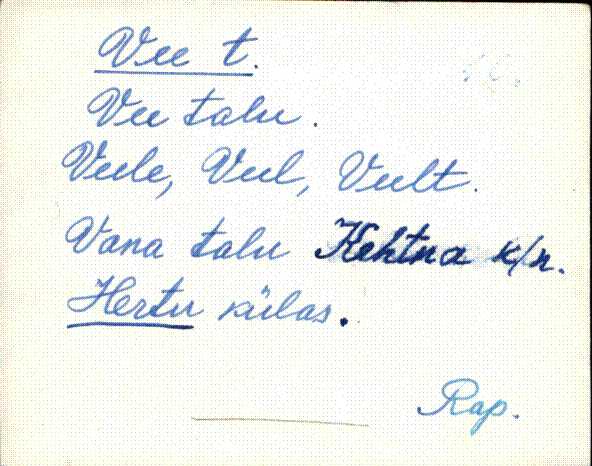 Vee t.
Vee talu.
Veele, Veel, Veelt.
Vana talu Kehtna k/n.
Hertu külas.
Rap.